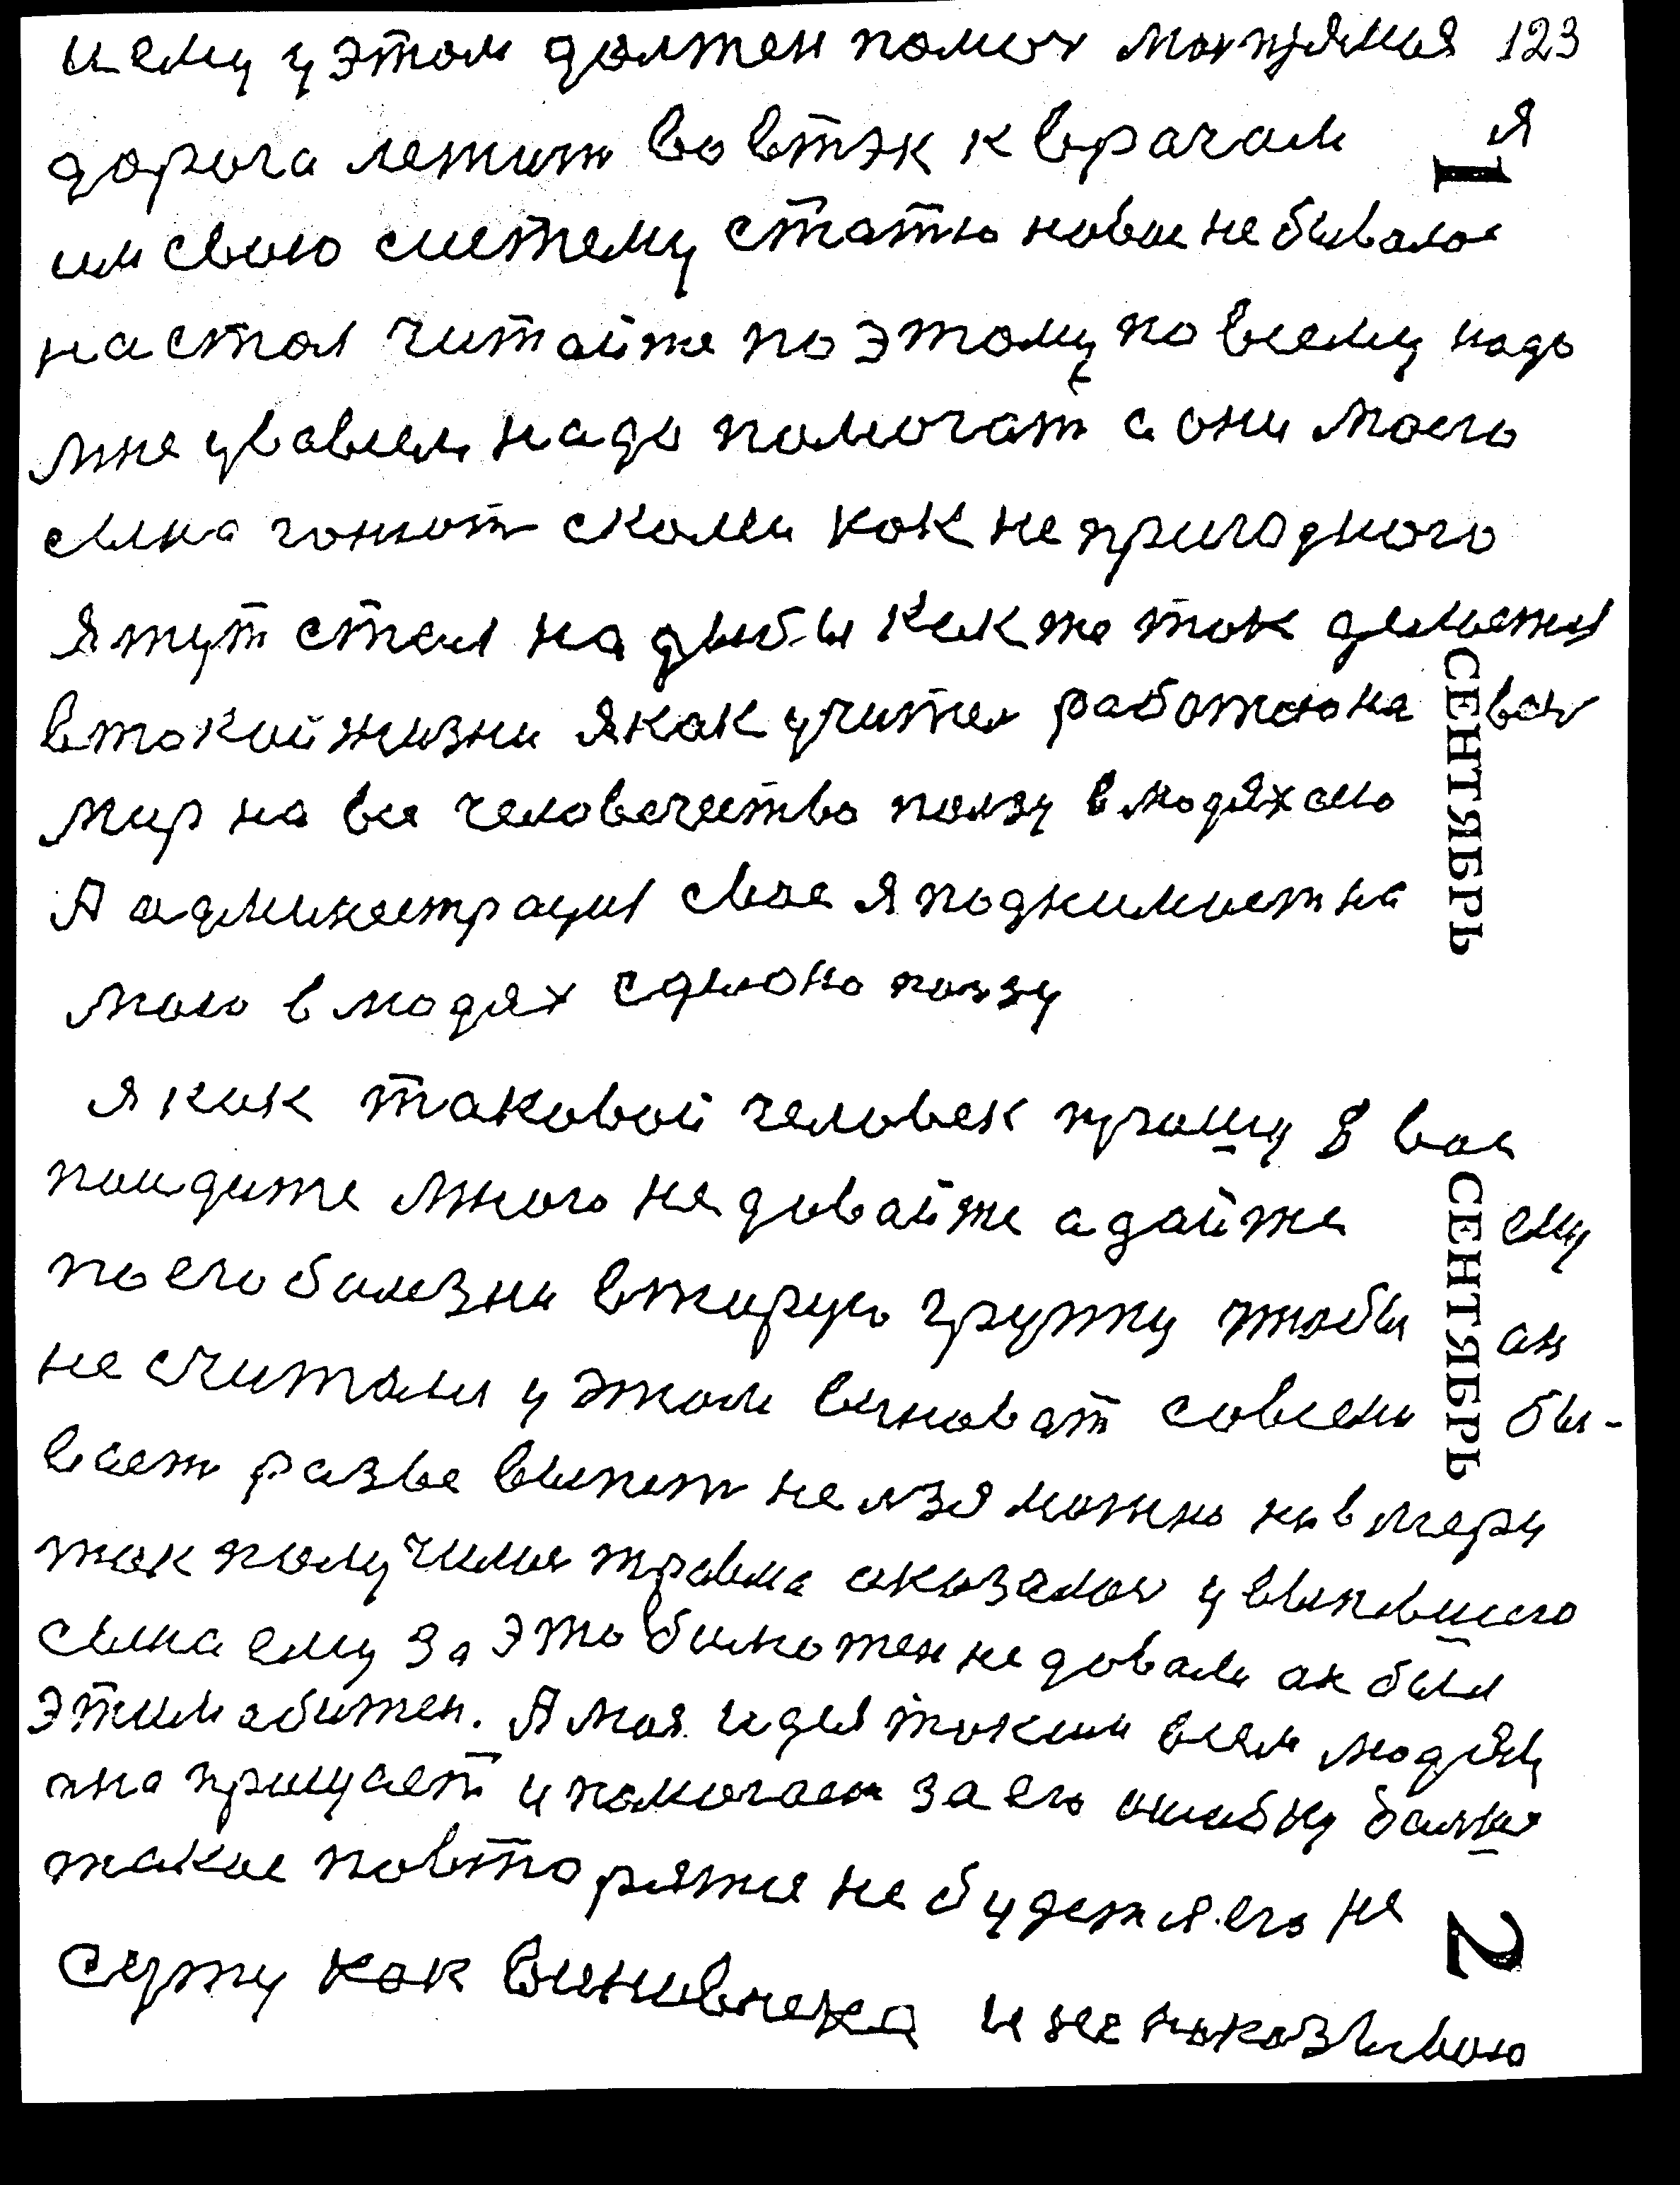 и ему у этом должен помоч моя прямая 123
дорога лежит во втэк к врачам я
им свою систему статю новое небывалое
на стол читайте по этому по всему надо
мне у всем надо помогат а они моего
сына гонют скоми как не пригодного
я тут стал на дыбы как же так
в такой жизни я как учител работаю на вес
мир на все человечество ползу в людях
А админестрация свое я поднимает на
мою в людях сделоно ползу
я как таковой человек прошу в вас
пойдите много не довайте а дайте ему
по его болезни вторую групу чтобы он
не считали у этом виноват совсем бы-
вает разве випит нелзя можно нов меру
так получилос травма оказалос у выпевшего
сына ему за это билютен не довали он был
этим обижен. А моя идея таким всем людям
она прищает и помогает за его ошибку болше
такое повторятся не будет я его не
сужу как виновнека и не показываю
СЕНТЯБРЬ
1
СЕНТЯБРЬ
2